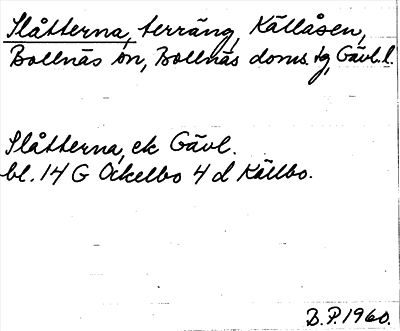 Slåtterna, terräng, Källåsen,
Bollnäs sn, Bollnäs doms. tg, Gävl. l.
Slåtterna, ek Gävl.
bl. 14 G Ockelbo 4 d Källbo.
B.P. 1960.